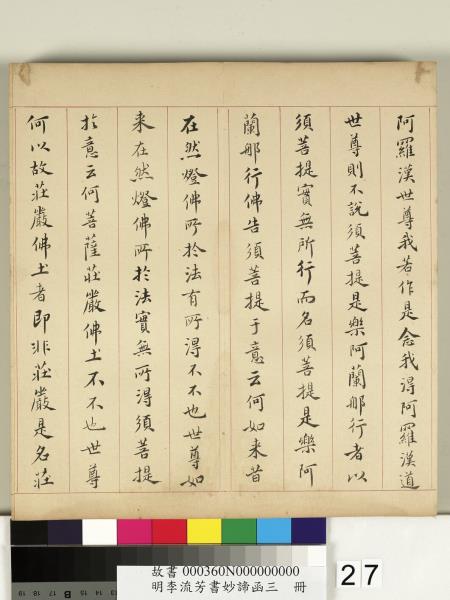 阿羅漢世尊我若作是念我得阿羅漢道
世尊則不說須菩提是樂阿蘭那行者以
須菩提實無所行而名須菩提是樂阿
蘭那行佛告須菩提于意云何如来昔
在然燈佛所於法有所得不不也世尊如
来在然燈佛所於法實無所得須菩提
於意云何菩薩莊嚴佛土不不也世尊
何以故莊嚴佛土者即非莊嚴是名莊
故書 000360N000000000
明李流芳書妙諦函三 冊
27